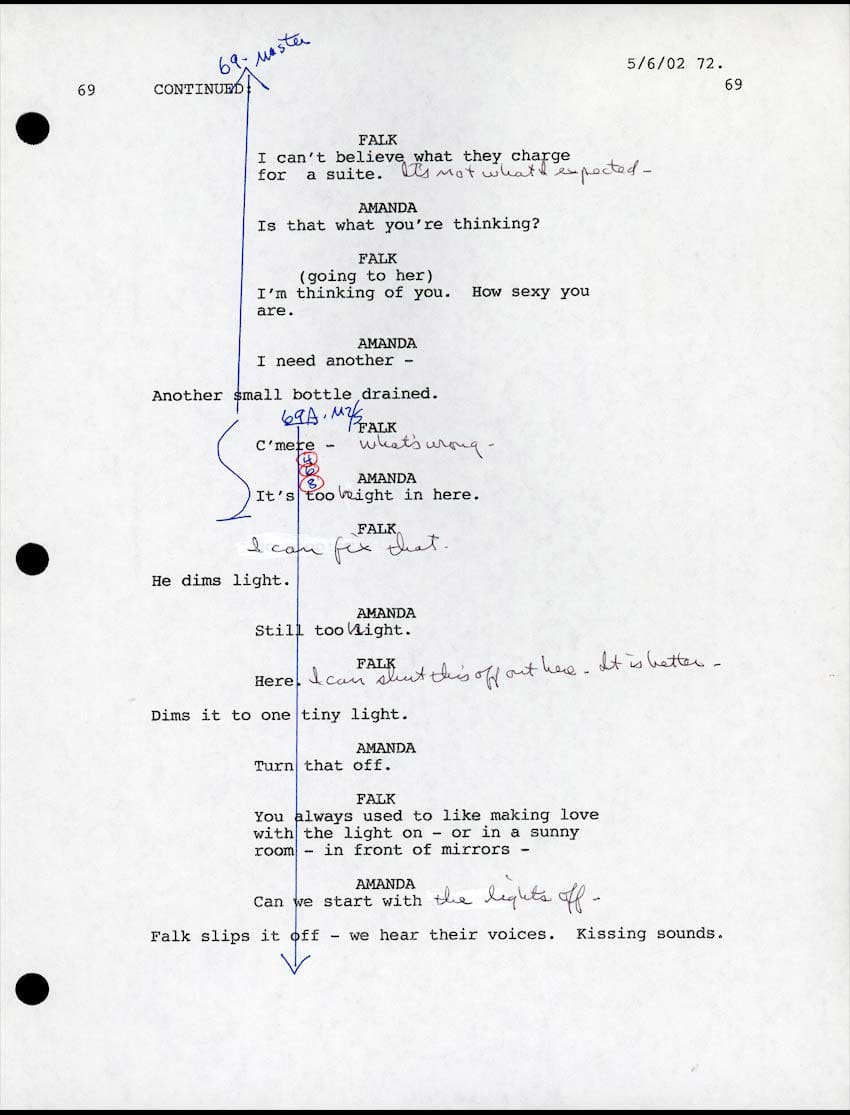 69-Master
5/6/02 72.
69 CONTINUED: 69
FALK
I can't believe what they charge
for a suite. It's not what I expected -
AMANDA
Is that what you're thinking?
FALK
(going to her)
I'm thinking of you. How sexy you
are.
AMANDA
I need another -
Another small bottle drained.
69A. M2/S
FALK
C'mere - what's wrong -
4
6
8
AMANDA
It's too bright in here.
FALK
I can fix that.
He dims light.
AMANDA
Still too bright.
FALK
Here. I can shut this off out here. It is better -
Dims it to one tiny light.
AMANDA
Turn that off.
FALK
You always used to like making love
with the light on - or in a sunny
room - in front of mirrors -
AMANDA
Can we start with the lights off -
Falk slips it off - we hear their voices. Kissing sounds.